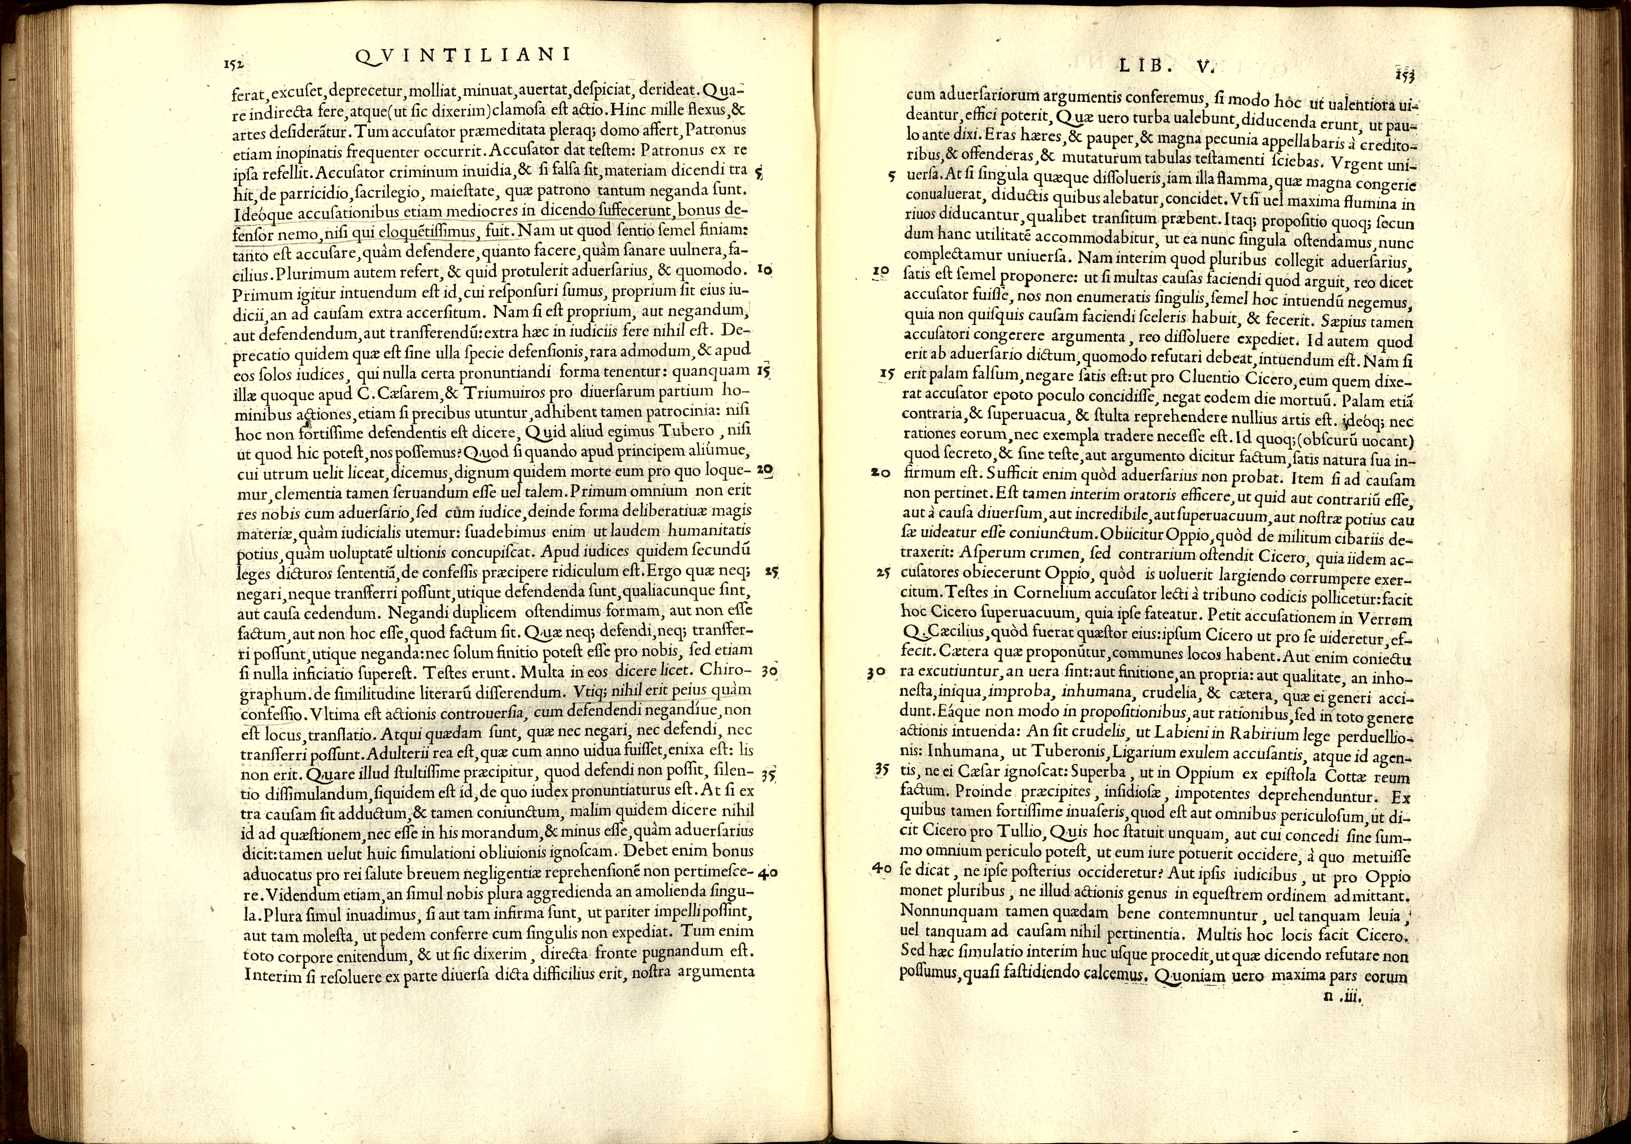 152
QVINTILIANI
ferat,excuſet,deprecetur,molliat,minuat,auertat,deſpiciat, derideat. Qua-
re indirecta fere,atque(ut ſic dixerim)clamoſa eſt actio. Hinc mille flexus,&
artes deſiderãtur. Tum accuſator præmeditata pleraq; domo affert, Patronus
etiam inopinatis frequenter occurrit. Accuſator dat teſtem: Patronus ex re
ipſa refellit. Accuſator criminum inuidia,& ſi falſa ſit,materiam dicendi tra 5
hit,de parricidio,ſacrilegio, maieſtate, quæ patrono tantum neganda ſunt.
Ideóque accuſationibus etiam mediocres in dicendo ſuffecerunt,bonus de-
fenſor nemo,niſi qui eloquẽtiſſimus, fuit. Nam ut quod ſentio ſemel finiam:
tanto eſt accuſare,quàm defendere, quanto facere,quàm ſanare uulnera,fa-
cilius. Plurimum autem refert, & quid protulerit aduerſarius, & quomodo. 10
Primum igitur intuendum eſt id,cui reſponſuri ſumus, proprium ſit eius iu-
dicii,an ad cauſam extra accerſitum. Nam ſi eſt proprium, aut negandum,
aut defendendum,aut transferendũ:extra hæc in iudiciis fere nihil eſt. De-
precatio quidem quæ eſt ſine ulla ſpecie defenſionis,rara admodum,& apud
eos ſolos iudices, qui nulla certa pronuntiandi forma tenentur: quanquam 15
illæ quoque apud C.Cæſarem,& Triumuiros pro diuerſarum partium ho-
minibus actiones,etiam ſi precibus utuntur,adhibent tamen patrocinia: niſi
hoc non fortiſſime defendentis eſt dicere, Quid aliud egimus Tubero, niſi
ut quod hic poteſt,nos poſſemus? Quod ſi quando apud principem aliúmue,
cui utrum uelit liceat,dicemus,dignum quidem morte eum pro quo loque- 20
mur,clementia tamen ſeruandum eſſe uel talem. Primum omnium non erit
res nobis cum aduerſario,ſed cùm iudice,deinde forma deliberatiuæ magis
materiæ,quàm iudicialis utemur: ſuadebimus enim ut laudem humanitatis
potius,quàm uoluptatẽ ultionis concupiſcat. Apud iudices quidem ſecundũ
leges dicturos ſententiã,de confeſſis præcipere ridiculum eſt. Ergo quæ neq; 25
negari,neque transferri poſſunt,utique defendenda ſunt,qualiacunque ſint,
aut cauſa cedendum. Negandi duplicem oſtendimus formam, aut non eſſe
factum,aut non hoc eſſe,quod factum ſit. Quæ neq; defendi,neq; transfer-
ri poſſunt,utique neganda:nec ſolum finitio poteſt eſſe pro nobis, ſed etiam
ſi nulla inficiatio ſupereſt. Teſtes erunt. Multa in eos dicere licet. Chiro- 30
graphum.de ſimilitudine literarũ diſſerendum. Vtiq; nihil erit peius quàm
confeſſio. Vltima eſt actionis controuerſia, cum defendendi negandíue,non
eſt locus,tranſlatio. Atqui quædam ſunt, quæ nec negari, nec defendi, nec
transferri poſſunt. Adulterii rea eſt,quæ cum anno uidua fuiſſet,enixa eſt: lis
non erit. Quare illud ſtultiſſime præcipitur, quod defendi non poſſit, ſilen- 35
tio diſſimulandum,ſiquidem eſt id,de quo iudex pronuntiaturus eſt. At ſi ex
tra cauſam ſit adductum,& tamen coniunctum, malim quidem dicere nihil
id ad quæſtionem,nec eſſe in his morandum,& minus eſſe,quàm aduerſarius
dicit:tamen uelut huic ſimulationi obliuionis ignoſcam. Debet enim bonus
aduocatus pro rei ſalute breuem negligentiæ reprehenſionẽ non pertimeſce- 40
re. Videndum etiam,an ſimul nobis plura aggredienda an amolienda ſingu-
la. Plura ſimul inuadimus, ſi aut tam infirma ſunt, ut pariter impelli poſſint,
aut tam moleſta, ut pedem conferre cum ſingulis non expediat. Tum enim
toto corpore enitendum, & ut ſic dixerim, directa fronte pugnandum eſt.
Interim ſi reſoluere ex parte diuerſa dicta difficilius erit, noſtra argumenta
LIB. V.
153
cum aduerſariorum argumentis conferemus, ſi modo hoc ut ualentiora ui-
deantur,effici poterit, Quæ uero turba ualebunt,diducenda erunt, ut pau-
lo ante dixi. Eras hæres,& pauper,& magna pecunia appellabaris à credito-
ribus,& offenderas,& mutaturum tabulas teſtamenti ſciebas. Vrgent uni-
5 uerſa. At ſi ſingula quæque diſſolueris,iam illa flamma,quæ magna congerie
conualuerat, diductis quibus alebatur,concidet. Vt ſi uel maxima flumina in
riuos diducantur,qualibet tranſitum præbent. Itaq; propoſitio quoq; ſecun
dum hanc utilitatẽ accommodabitur, ut ea nunc ſingula oſtendamus,nunc
complectamur uniuerſa. Nam interim quod pluribus collegit aduerſarius,
10 ſatis eſt ſemel proponere: ut ſi multas cauſas faciendi quod arguit, reo dicet
accuſator fuiſſe, nos non enumeratis ſingulis,ſemel hoc intuendũ negemus,
quia non quiſquis cauſam faciendi ſceleris habuit, & fecerit. Sæpius tamen
accuſatori congerere argumenta, reo diſſoluere expediet. Id autem quod
erit ab aduerſario dictum,quomodo refutari debeat,intuendum eſt. Nam ſi
15 erit palam falſum,negare ſatis eſt:ut pro Cluentio Cicero,eum quem dixe-
rat accuſator epoto poculo concidiſſe, negat eodem die mortuũ. Palam etiã
contraria,& ſuperuacua, & ſtulta reprehendere nullius artis eſt. ideóq; nec
rationes eorum,nec exempla tradere neceſſe eſt. Id quoq;(obſcurũ uocant)
quod ſecreto,& ſine teſte,aut argumento dicitur factum,ſatis natura ſua in-
20 firmum eſt. Sufficit enim quòd aduerſarius non probat. Item ſi ad cauſam
non pertinet. Eſt tamen interim oratoris efficere,ut quid aut contrariũ eſſe,
aut à cauſa diuerſum,aut incredibile,aut ſuperuacuum,aut noſtræ potius cau
ſæ uideatur eſſe coniunctum. Obiicitur Oppio,quòd de militum cibariis de-
traxerit: Aſperum crimen, ſed contrarium oſtendit Cicero, quia iidem ac-
25 cuſatores obiecerunt Oppio, quòd is uoluerit largiendo corrumpere exer-
citum. Teſtes in Cornelium accuſator lecti à tribuno codicis pollicetur:facit
hoc Cicero ſuperuacuum, quia ipſe fateatur. Petit accuſationem in Verrem
Q. Cæcilius,quòd fuerat quæſtor eius:ipſum Cicero ut pro ſe uideretur,ef-
fecit. Cætera quæ proponũtur,communes locos habent. Aut enim coniectu
30 ra excutiuntur,an uera ſint:aut finitione,an propria: aut qualitate, an inho-
neſta,iniqua,improba, inhumana, crudelia, & cætera, quæ ei generi acci-
dunt. Eáque non modo in propoſitionibus,aut rationibus,ſed in toto genere
actionis intuenda: An ſit crudelis, ut Labieni in Rabirium lege perduellio-
nis: Inhumana, ut Tuberonis,Ligarium exulem accuſantis, atque id agen-
35 tis, ne ei Cæſar ignoſcat: Superba, ut in Oppium ex epiſtola Cottæ reum
factum. Proinde præcipites, inſidioſæ, impotentes deprehenduntur. Ex
quibus tamen fortiſſime inuaſeris,quod eſt aut omnibus periculoſum,ut di-
cit Cicero pro Tullio, Quis hoc ſtatuit unquam, aut cui concedi ſine ſum-
mo omnium periculo poteſt, ut eum iure potuerit occidere, à quo metuiſſe
40 ſe dicat, ne ipſe poſterius occideretur? Aut ipſis iudicibus, ut pro Oppio
monet pluribus, ne illud actionis genus in equeſtrem ordinem admittant.
Nonnunquam tamen quædam bene contemnuntur, uel tanquam leuia,
uel tanquam ad cauſam nihil pertinentia. Multis hoc locis facit Cicero.
Sed hæc ſimulatio interim huc uſque procedit,ut quæ dicendo refutare non
poſſumus,quaſi faſtidiendo calcemus. Quoniam uero maxima pars eorum
n .iii.